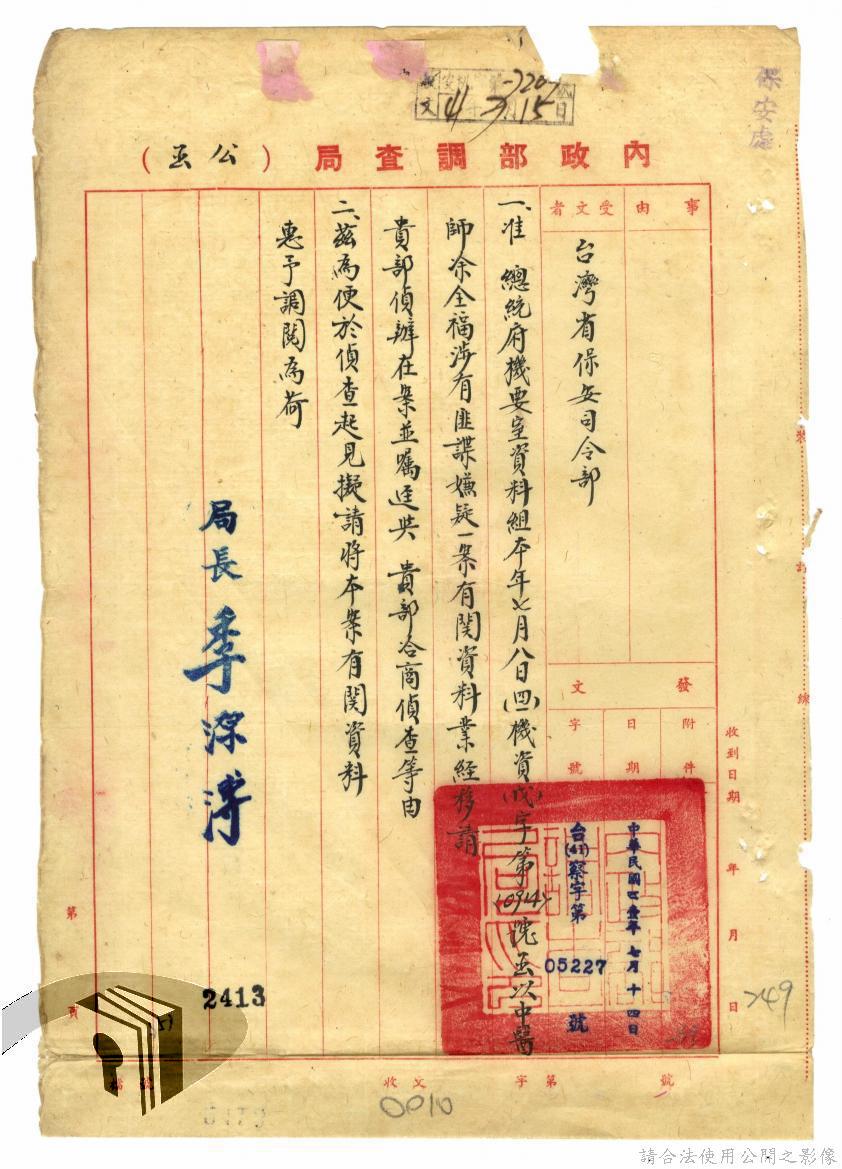 保安處
41 7月15日
內政部調查局（公函）
事由
受文者
台灣省保安司令部
發文
附件
日期
字號
中華民國四壹年七月十四日
台(41)察字第05227號
一、准　總統府機要室資料組本年七月八日(四一)機資(戊)字第10914號函以中醫
師余全福涉有匪諜嫌疑一案有關資料業經移請
貴部偵辦在案並囑逕與　貴部洽商偵查等由
二、茲為便於偵查起見擬請將本案有關資料
惠予調閱為荷
局長季源溥
2413
收到日期　年　月　日
749
裝訂線
第　頁
檔號
收文　字第　號
0010
請合法使用公開之影像